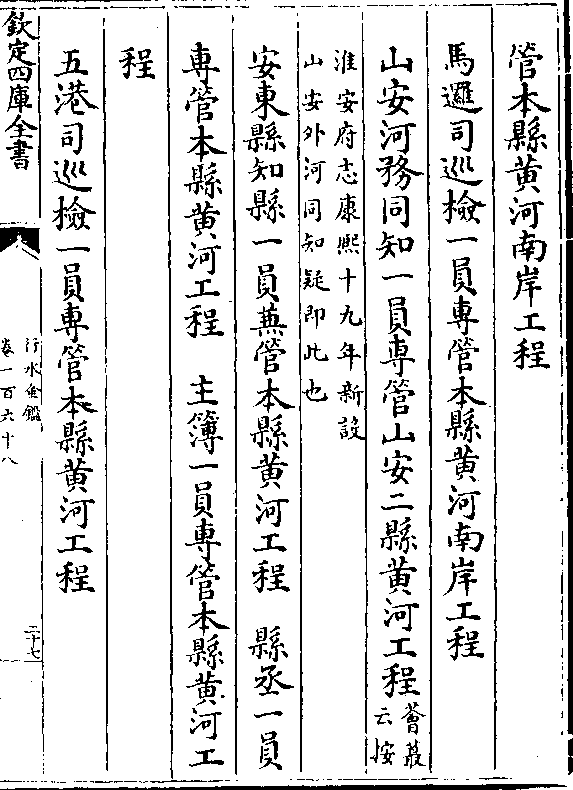 管本縣黄河南岸工程
馬邏司巡檢一員專管本縣黄河南岸工程
山安河務同知一員專管山安二縣黄河工程
薈蕞
云按
淮安府志康熙十九年新設
山安外河同知疑即此也
安東縣知縣一員兼管本縣黄河工程　縣丞一員
專管本縣黄河工程　主簿一員專管本縣黄河工
程
五港司巡檢一員專管本縣黄河工程
欽定四庫全書
行水金鑑
卷一百六十八
二十七